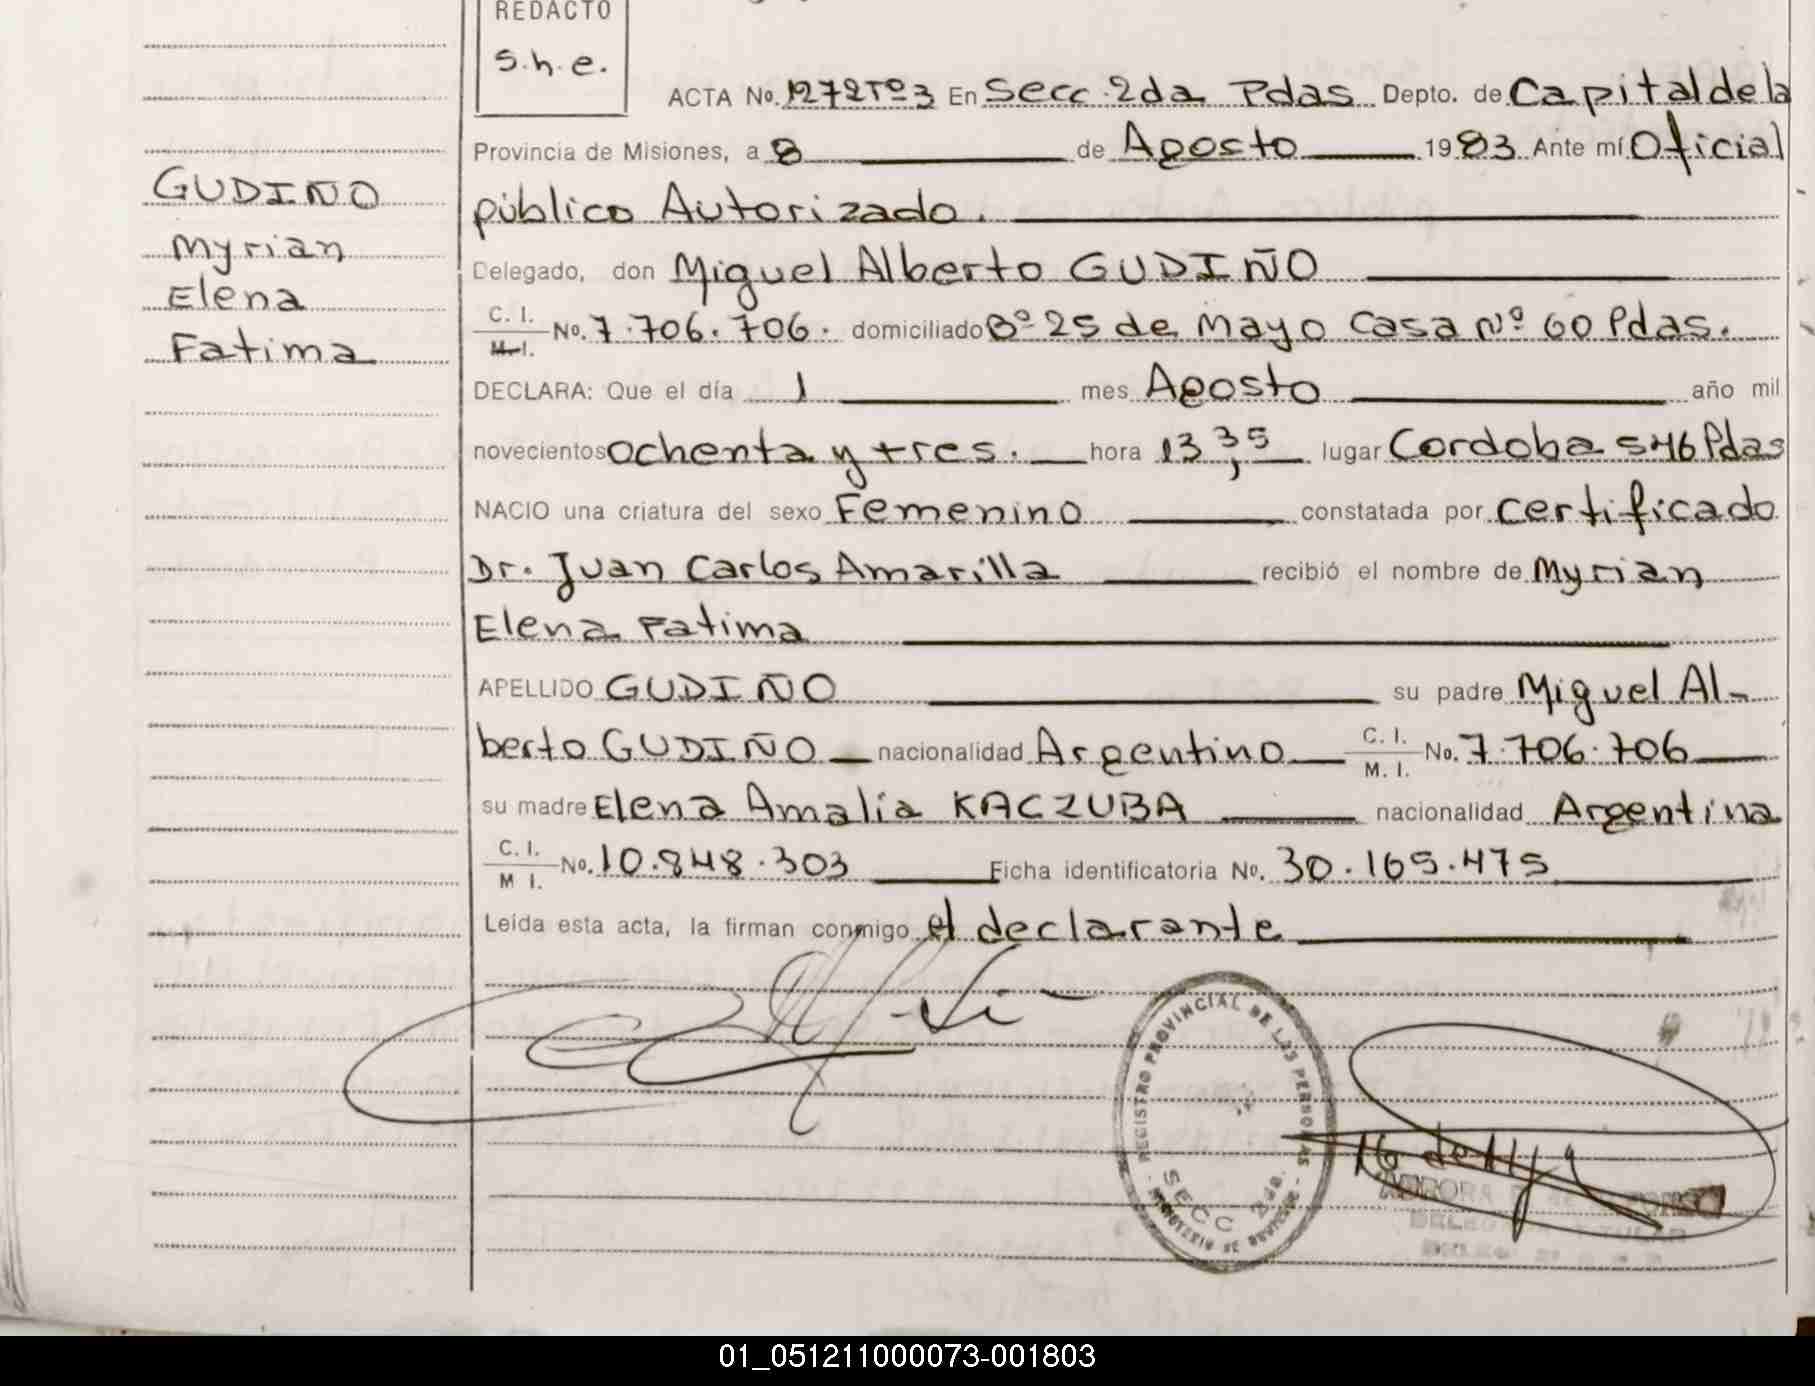 REDACTO
s.h.e.
ACTA No. 1272Tº3 En Secc. 2da Pdas Depto. de Capital de la
Provincia de Misiones, a 8 de Agosto 1983 Ante mí Oficial
público Autorizado.
Delegado, don Miguel Alberto GUDIÑO
C. I.
M. I.
No. 7.706.706. domiciliado Bº 25 de Mayo Casa Nº 60 Pdas.
DECLARA: Que el día 1 mes Agosto año mil
novecientos ochenta y tres. hora 13,35 lugar Cordoba 546 Pdas
NACIO una criatura del sexo Femenino constatada por certificado
Dr. Juan Carlos Amarilla recibió el nombre de Myrian
Elena Fatima
APELLIDO GUDIÑO su padre Miguel Al-
berto GUDIÑO nacionalidad Argentino C. I. M. I. No. 7.706.706
su madre Elena Amalia KACZUBA nacionalidad Argentina
C. I. M I. No. 10.848.303 Ficha identificatoria No. 30.165.475
Leída esta acta, la firman conmigo el declarante
GUDIÑO
Myrian
Elena
Fatima
REGISTRO PROVINCIAL DE LAS PERSONAS
SECC 2da.
MINISTERIO DE GOBIERNO
AURORA
01_051211000073-001803